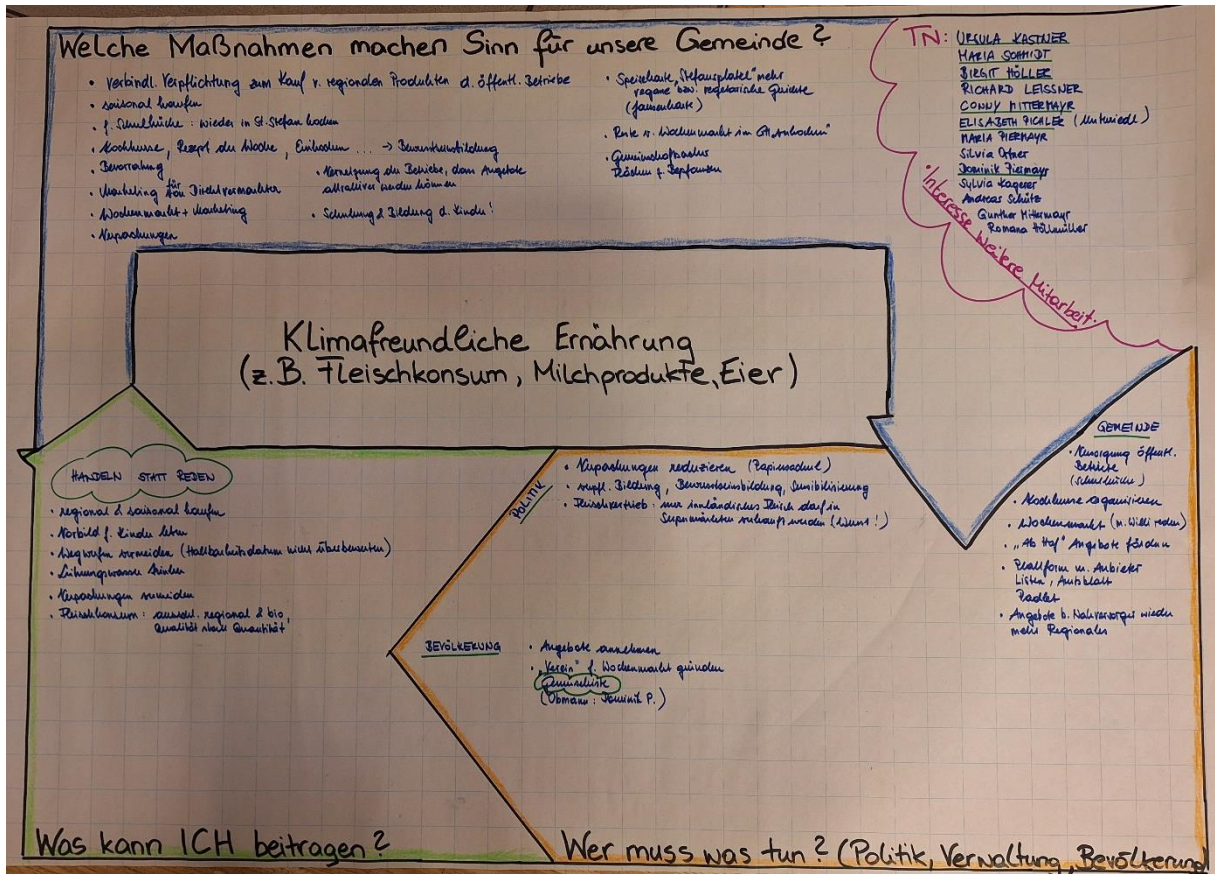 Welche Maßnahmen machen Sinn für unsere Gemeinde?
• Verbindl. Verpflichtung zum Kauf v. regionalen Produkten d. öffentl. Betriebe
• saisonal kaufen
• f. Schulküche: wieder in St. Stefan kochen
• Kochkurse, Rezept der Woche, Einkochen ... → Bewusstseinsbildung
• Bevorratung
• Marketing für Direktvermarkter
• Wochenmarkt + Marketing
• Verpackungen
• Vernetzung der Betriebe, dam Angebote
attraktiver werden können
• Schulung & Bildung d. Kinder!
• Speisekarte „Stefansplatzl" mehr
vegane bzw. vegetarische Gerichte
(Jausenkarte)
• Reste v. Wochenmarkt im GH „Ankochen"
• Gemeinschaftsacker
Flächen z. Bepflanzen
TN: URSULA KASTNER
MARIA SCHMIDT
BIRGIT HÖLLER
RICHARD LEISSNER
CONNY MITTERMAYR
ELISABETH PICHLER (Unterriedl)
MARIA PIERMAYR
Silvia Ortner
Dominik Piermayr
Sylvia Kagerer
Andreas Schütz
Gunther Mittermayr
Romana Höllmüller
• Interesse weitere Mitarbeit.
Klimafreundliche Ernährung
(z.B. Fleischkonsum, Milchprodukte, Eier)
HANDELN STATT REDEN
• regional & saisonal kaufen
• Vorbild f. Kinder leben
• Wegwerfen vermeiden (Haltbarkeitsdatum nicht überbewerten)
• Leitungswasser trinken
• Verpackungen vermeiden
• Fleischkonsum: ausschl. regional & bio,
Qualität statt Quantität
Was kann ICH beitragen?
POLITIK
• Verpackungen reduzieren (Papiersackerl)
• verpfl. Bildung, Bewusstseinsbildung, Sensibilisierung
• Fleischvertrieb: nur inländisches Fleisch darf in
Supermärkten verkauft werden (Wurst!)
BEVÖLKERUNG
• Angebote annehmen
• „Verein" f. Wochenmarkt gründen
(Obmann: Dominik P.)
GEMEINDE
• Versorgung öffentl.
Betriebe
(Schulküche)
• Kochkurse organisieren
• Wochenmarkt (m. Willi reden)
• „Ab Hof" Angebote fördern
• Plattform m. Anbieter
Listen, Amtsblatt
Padlet
• Angebote b. Nahversorger wieder
mehr Regionales
Wer muss was tun? (Politik, Verwaltung, Bevölkerung)